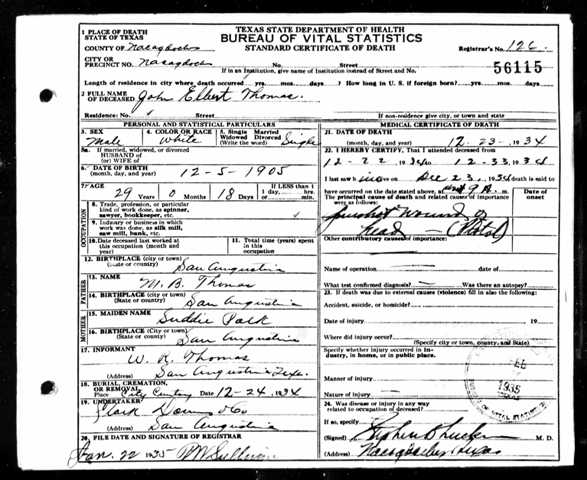 TEXAS STATE DEPARTMENT OF HEALTH
BUREAU OF VITAL STATISTICS
STANDARD CERTIFICATE OF DEATH
1 PLACE OF DEATH
STATE OF TEXAS
COUNTY OF Nacogdoches
Registrar's No. 126
CITY OR
PRECINCT NO. Nacogdoches No. Street
56115
If in an Institution, give name of Institution instead of Street and No.
Length of residence in city where death occurred yrs. mos. days? How long in U. S. if foreign born? yrs. mos. days.
2 FULL NAME
OF DECEASED John Elbert Thomas
Residence: No. Street
If non-resident give city, or town and state
PERSONAL AND STATISTICAL PARTICULARS
3. SEX Male
4. COLOR OR RACE White
5. Single Married Widowed Divorced (Write the word) Single
5a. If married, widowed, or divorced
HUSBAND OF
(or) WIFE of
6. DATE OF BIRTH 12-5-1905
(month, day, and year)
7. AGE 29 Years 0 Months 18 Days If LESS than 1 day, hrs. or min.
OCCUPATION
8. Trade, profession, or particular
kind of work done, as spinner,
sawyer, bookkeeper, etc.
9. Industry or business in which
work was done, as silk mill,
saw mill, bank, etc.
10. Date deceased last worked at
this occupation (month and
year)
11. Total time (years) spent
in this
occupation
12. BIRTHPLACE (city or town)
(State or country) San Augustine
FATHER
13. NAME M. B. Thomas
14. BIRTHPLACE (city or town)
(State or country) San Augustine
MOTHER
15. MAIDEN NAME Suddie Polk
16. BIRTHPLACE (city or town)
(State or country) San Augustine
17. INFORMANT W. R. Thomas
(Address) San Augustine Texs.
18. BURIAL, CREMATION,
OR REMOVAL
Place City Date 12-24 1934
19. UNDERTAKER
(Address) San Augustine
20. FILE DATE AND SIGNATURE OF REGISTRAR
Jan. 22 1935
MEDICAL CERTIFICATE OF DEATH
21. DATE OF DEATH
(month, day, and year) 12-23-1934
22. I HEREBY CERTIFY, That I attended deceased from
12-22 1934 to 12-23 1934
I last saw him Dec 23, 1934 death is said to
have occurred on the date stated above, at 9 A. m.
The principal cause of death and related causes of importance
were as follows:
Date of
onset
Gunshot Wound of
head (Pistol)
Other contributory causes of importance:
Name of operation date of
What test confirmed diagnosis? Was there an autopsy?
23. If death was due to external causes (violence) fill in also the following:
Accident, suicide, or homicide?
Date of injury 19
Where did injury occur?
(Specify city or town, county, and State)
Specify whether injury occurred in industry, in home, or in public place.
Manner of injury
Nature of injury
24. Was disease or injury in any way
related to occupation of deceased?
If so, specify
(Signed) Stephen B Tucker M. D.
(Address) Nacogdoches Texas
1935